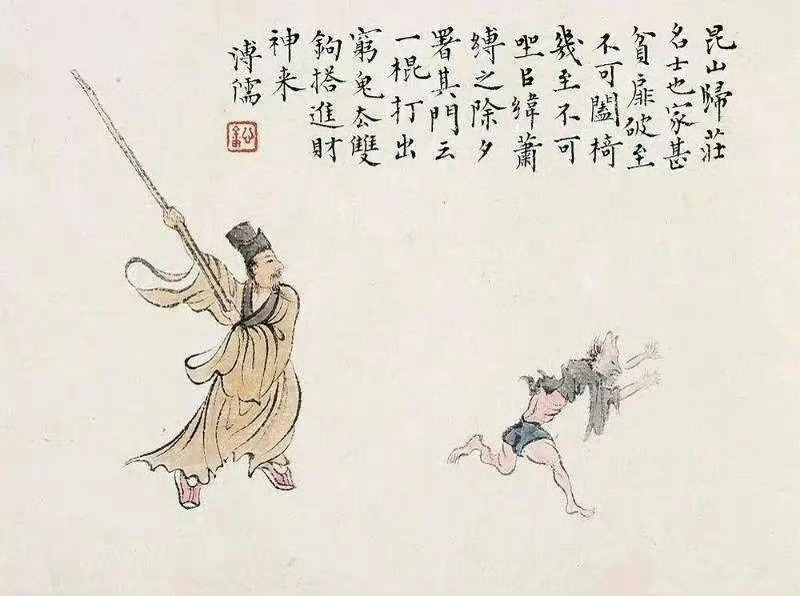 昆山歸莊
名士也家甚
貧扉破至
不可闔椅
幾至不可
坐㠯緯蕭
縛之除夕
署其門云
一棍打出
窮鬼去雙
鉤搭進財
神来
溥儒